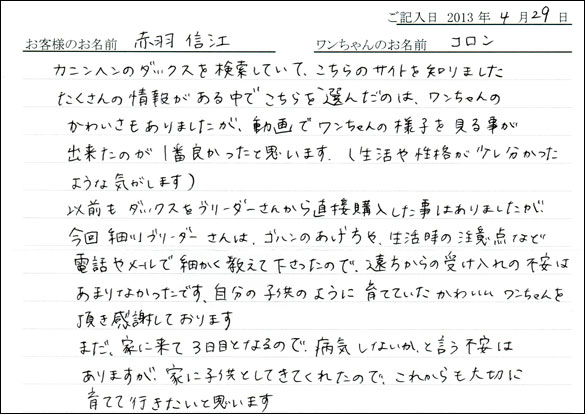 ご記入日 2013 年 4 月 29 日
お客様のお名前 赤羽 信江 ワンちゃんのお名前 コロン
カニンヘンのダックスを検索していて、こちらのサイトを知りました
たくさんの情報がある中でこちらを選んだのは、ワンちゃんの
かわいさもありましたが、動画でワンちゃんの様子を見る事が
出来たのが1番良かったと思います。(生活や性格が少し分かった
ような気がします)
以前もダックスをブリーダーさんから直接購入した事はありましたが、
今回細川ブリーダーさんは、ゴハンのあげ方や、生活時の注意点など
電話やメールで細かく教えて下さったので、遠方からの受け入れの不安は
あまりなかったです、自分の子供のように育てていたかわいいワンちゃんを
頂き感謝しております
まだ、家に来て3日目となるので、病気しないか、と言う不安は
ありますが、家に子供としてきてくれたので、これからも大切に
育てて行きたいと思います